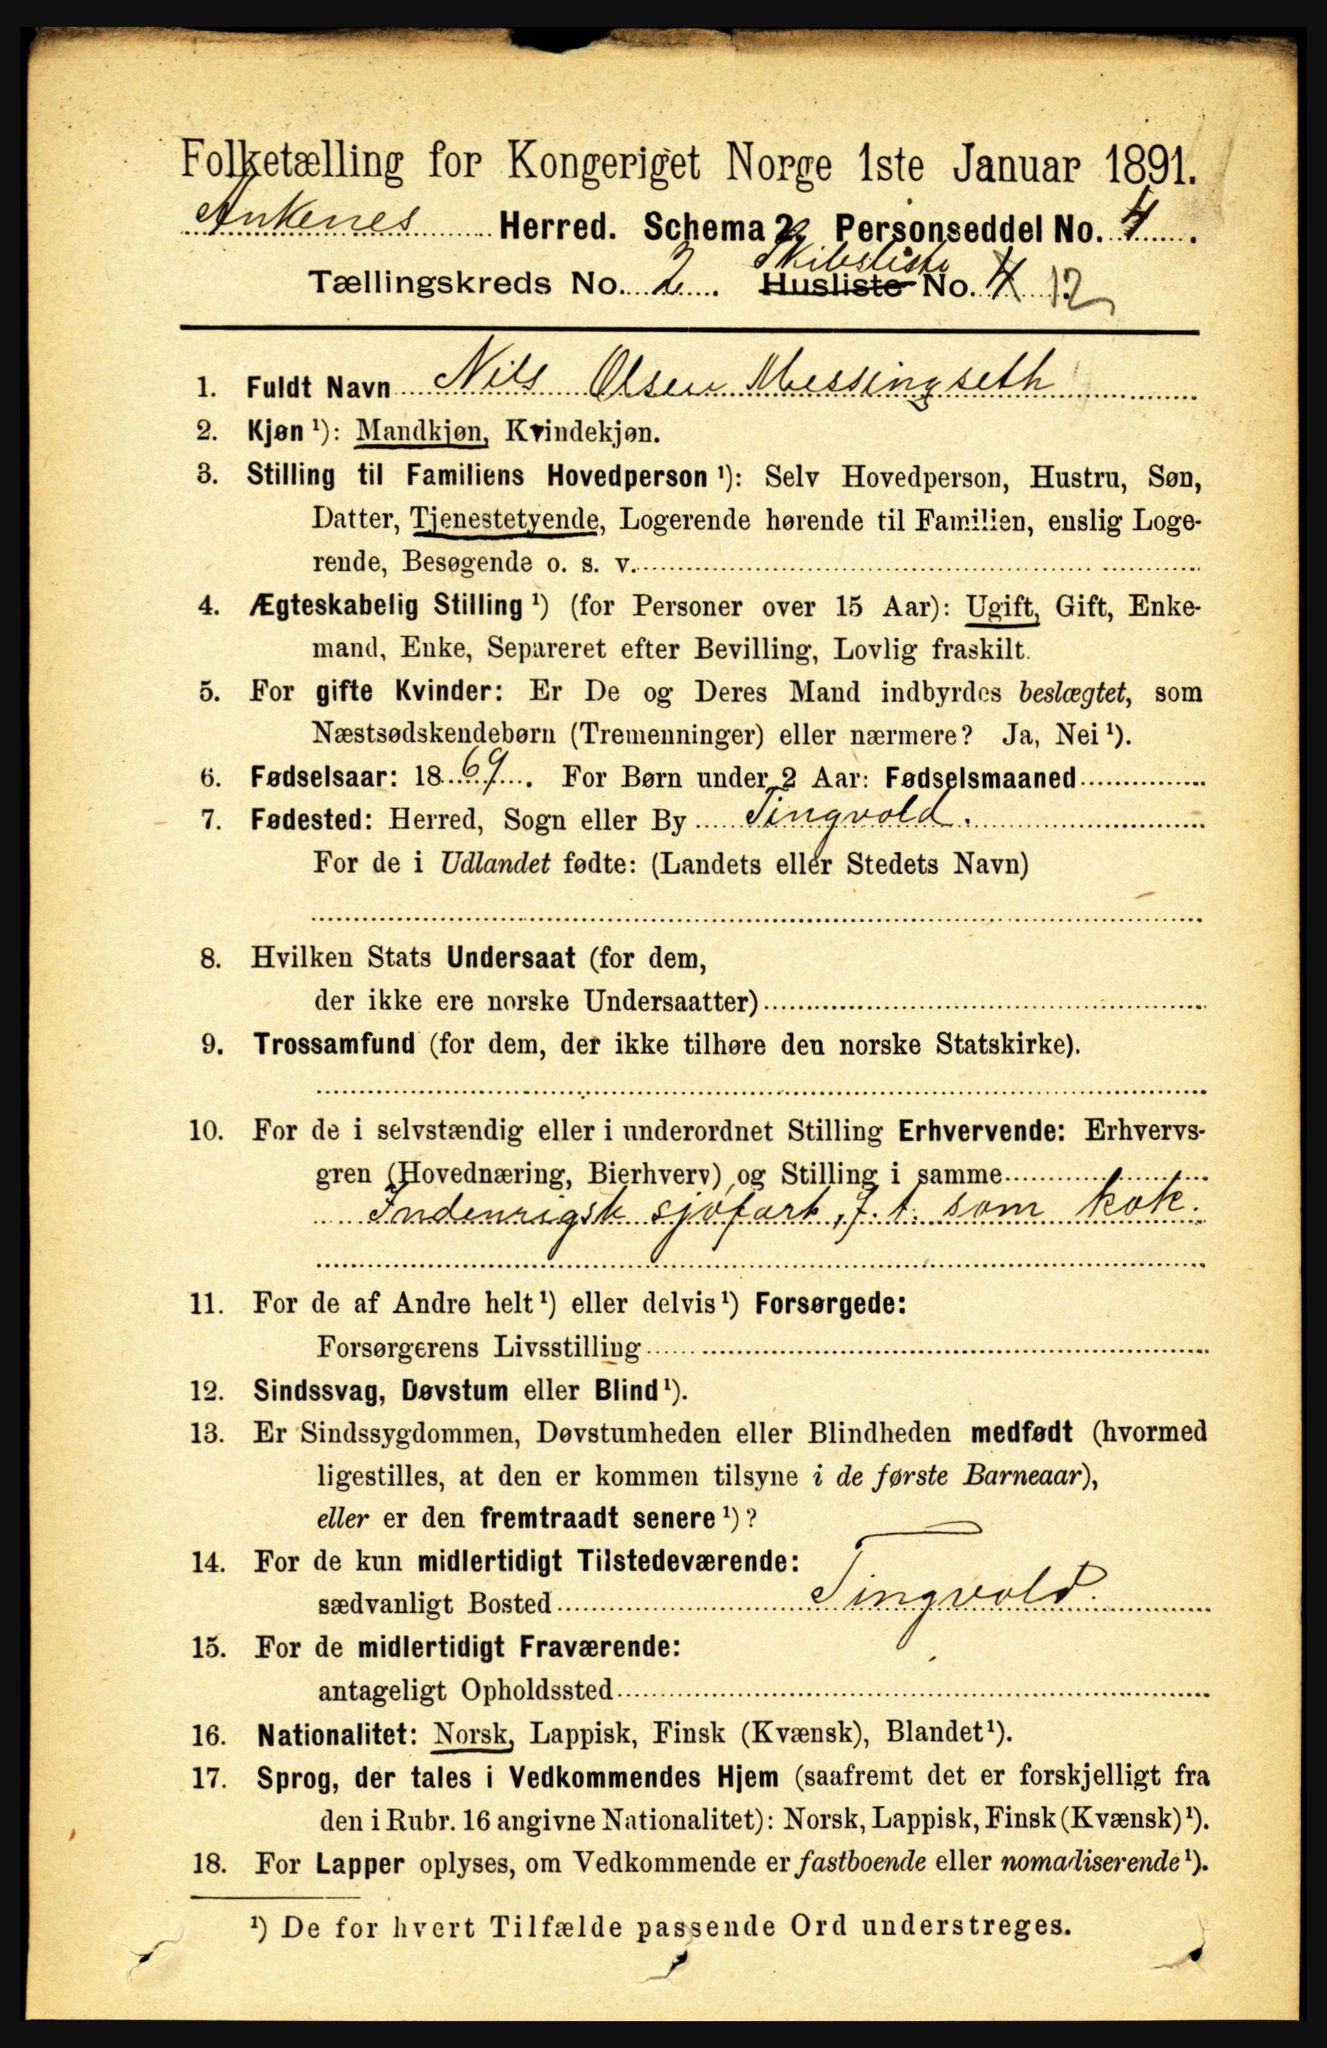 Folketælling for Kongeriget Norge 1ste Januar 1891.
Ankenes Herred. Schema 2. Personseddel No. 4.
Skibsliste
Tællingskreds No. 2. Husliste No. 4 12
1. Fuldt Navn Nils Olsen Messingseth
2. Kjøn ¹): Mandkjøn, Kvindekjøn.
3. Stilling til Familiens Hovedperson ¹): Selv Hovedperson, Hustru, Søn,
Datter, Tjenestetyende, Logerende hørende til Familien, enslig Loge-
rende, Besøgende o. s. v.
4. Ægteskabelig Stilling ¹) (for Personer over 15 Aar): Ugift, Gift, Enke-
mand, Enke, Separeret efter Bevilling, Lovlig fraskilt.
5. For gifte Kvinder: Er De og Deres Mand indbyrdes beslægtet, som
Næstsødskendebørn (Tremenninger) eller nærmere? Ja, Nei ¹).
6. Fødselsaar: 1869. For Børn under 2 Aar: Fødselsmaaned
7. Fødested: Herred, Sogn eller By Tingvold.
For de i Udlandet fødte: (Landets eller Stedets Navn)
8. Hvilken Stats Undersaat (for dem,
der ikke ere norske Undersaatter)
9. Trossamfund (for dem, der ikke tilhøre den norske Statskirke).
10. For de i selvstændig eller i underordnet Stilling Erhvervende: Erhvervs-
gren (Hovednæring, Bierhverv) og Stilling i samme
Indenrigsk sjøfart, f. t. som kok.
11. For de af Andre helt ¹) eller delvis ¹) Forsørgede:
Forsørgerens Livsstilling
12. Sindssvag, Døvstum eller Blind ¹).
13. Er Sindssygdommen, Døvstumheden eller Blindheden medfødt (hvormed
ligestilles, at den er kommen tilsyne i de første Barneaar),
eller er den fremtraadt senere ¹)?
14. For de kun midlertidigt Tilstedeværende:
sædvanligt Bosted Tingvold.
15. For de midlertidigt Fraværende:
antageligt Opholdssted
16. Nationalitet: Norsk, Lappisk, Finsk (Kvænsk), Blandet ¹).
17. Sprog, der tales i Vedkommendes Hjem (saafremt det er forskjelligt fra
den i Rubr. 16 angivne Nationalitet): Norsk, Lappisk, Finsk (Kvænsk) ¹).
18. For Lapper oplyses, om Vedkommende er fastboende eller nomadiserende ¹).
¹) De for hvert Tilfælde passende Ord understreges.